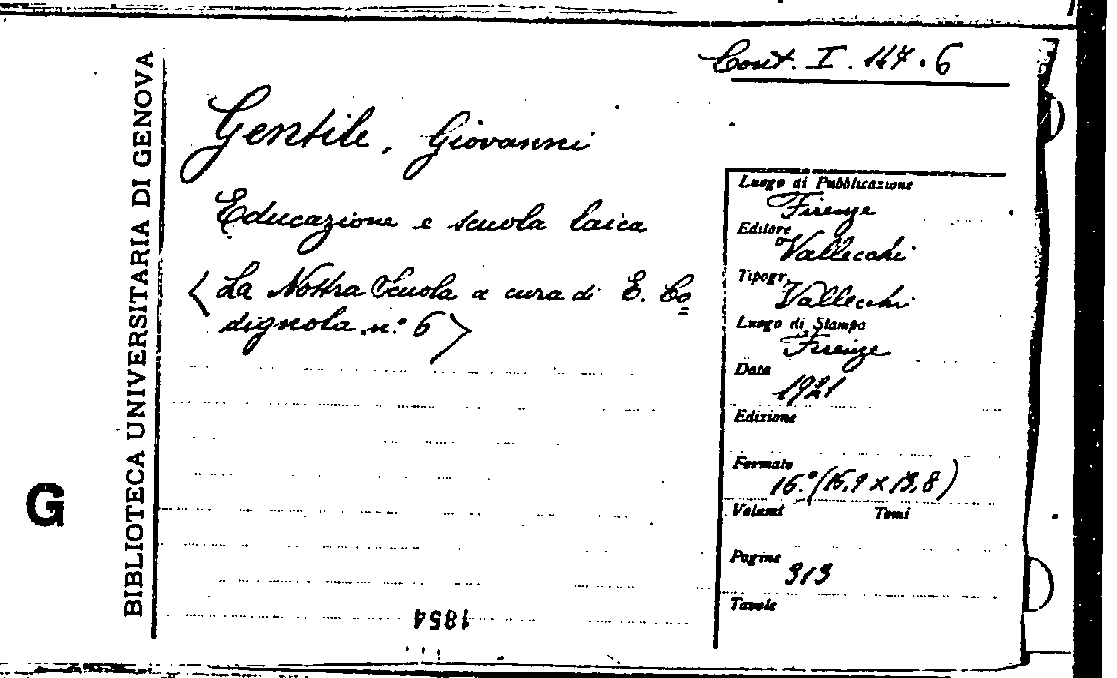 Cont. I. 147.6
BIBLIOTECA UNIVERSITARIA DI GENOVA
G
Gentile, Giovanni
Educazione e scuola laica
<La Nostra Scuola a cura di E. Co
dignola n.° 6>
Luogo di Pubblicazione
Firenze
Editore
Vallecchi
Tipogr.
Vallecchi
Luogo di Stampa
Firenze
Data
1921
Edizione
Formato
16.° (15,9 x 13,8)
Volumi Tomi
Pagine
313
Tavole
1854